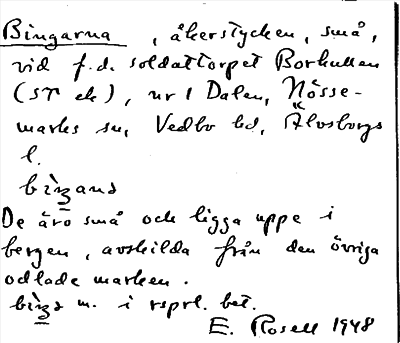 Bingarna, åkerstycken, små,
vid f.d. soldattorpet Borkullen
(ST ek), nr 1 Dalen, Nösse-
marks sn, Vedbo hd, Älvsborgs
l.
bìŋana
De äro små och ligga uppe i
bergen, avskilda från den övriga
odlade marken.
bìŋa m. i rspr. bet.
E. Rosell 1948